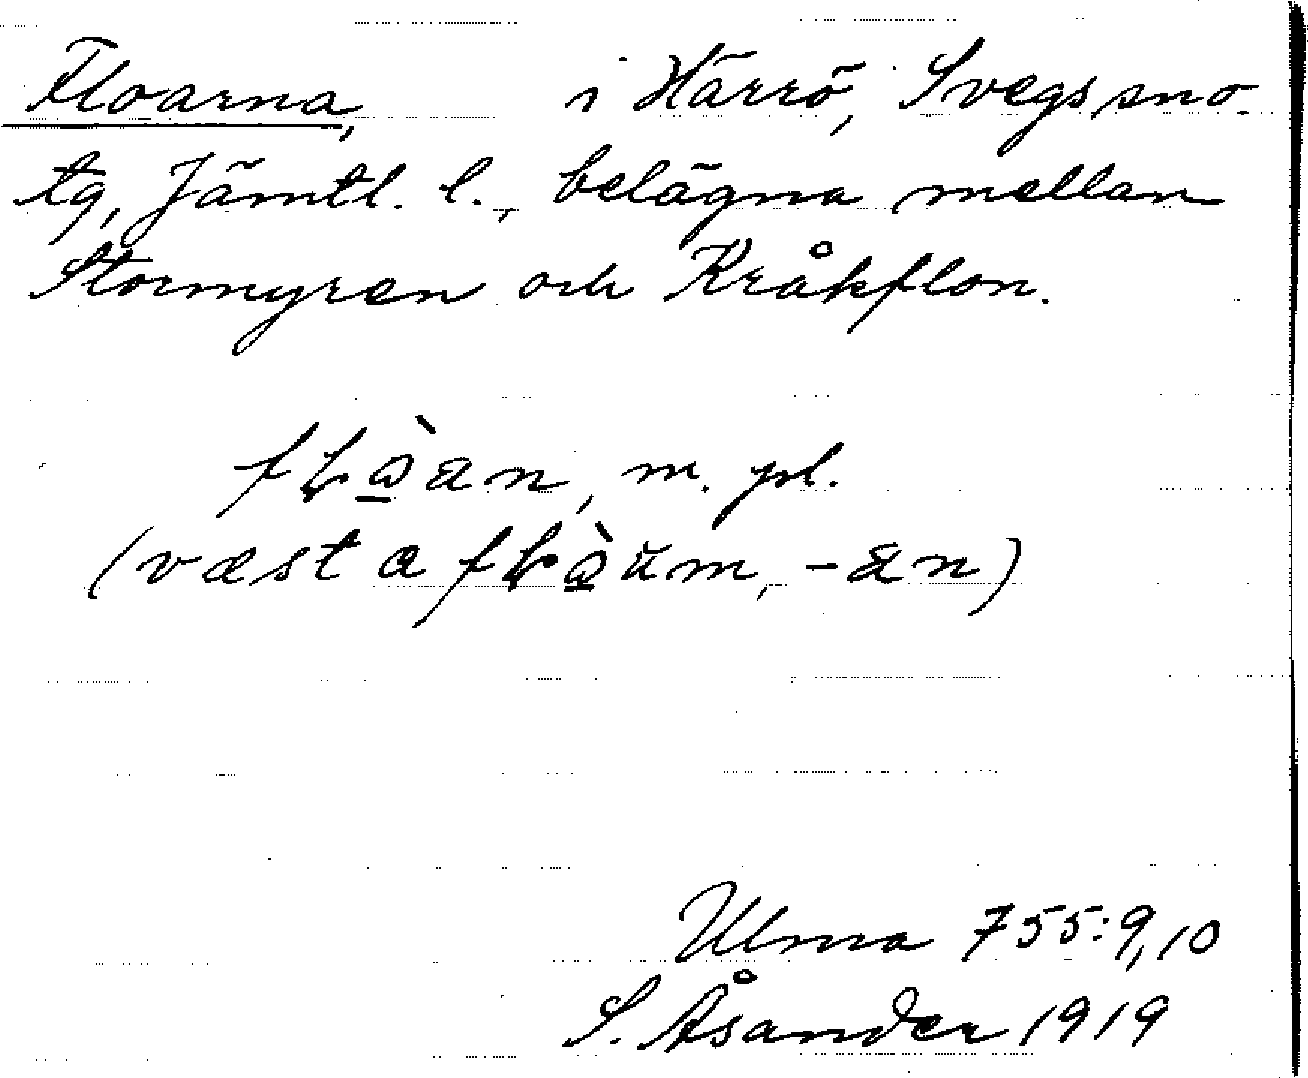 Floarna, i Härrö, Svegs sno-
tg, Jämtl. l., belägna mellan
Stormyren och Kråkflon.
m. pl.
(væst a -än)
Ulma 755:9,10
S. Åsander 1919